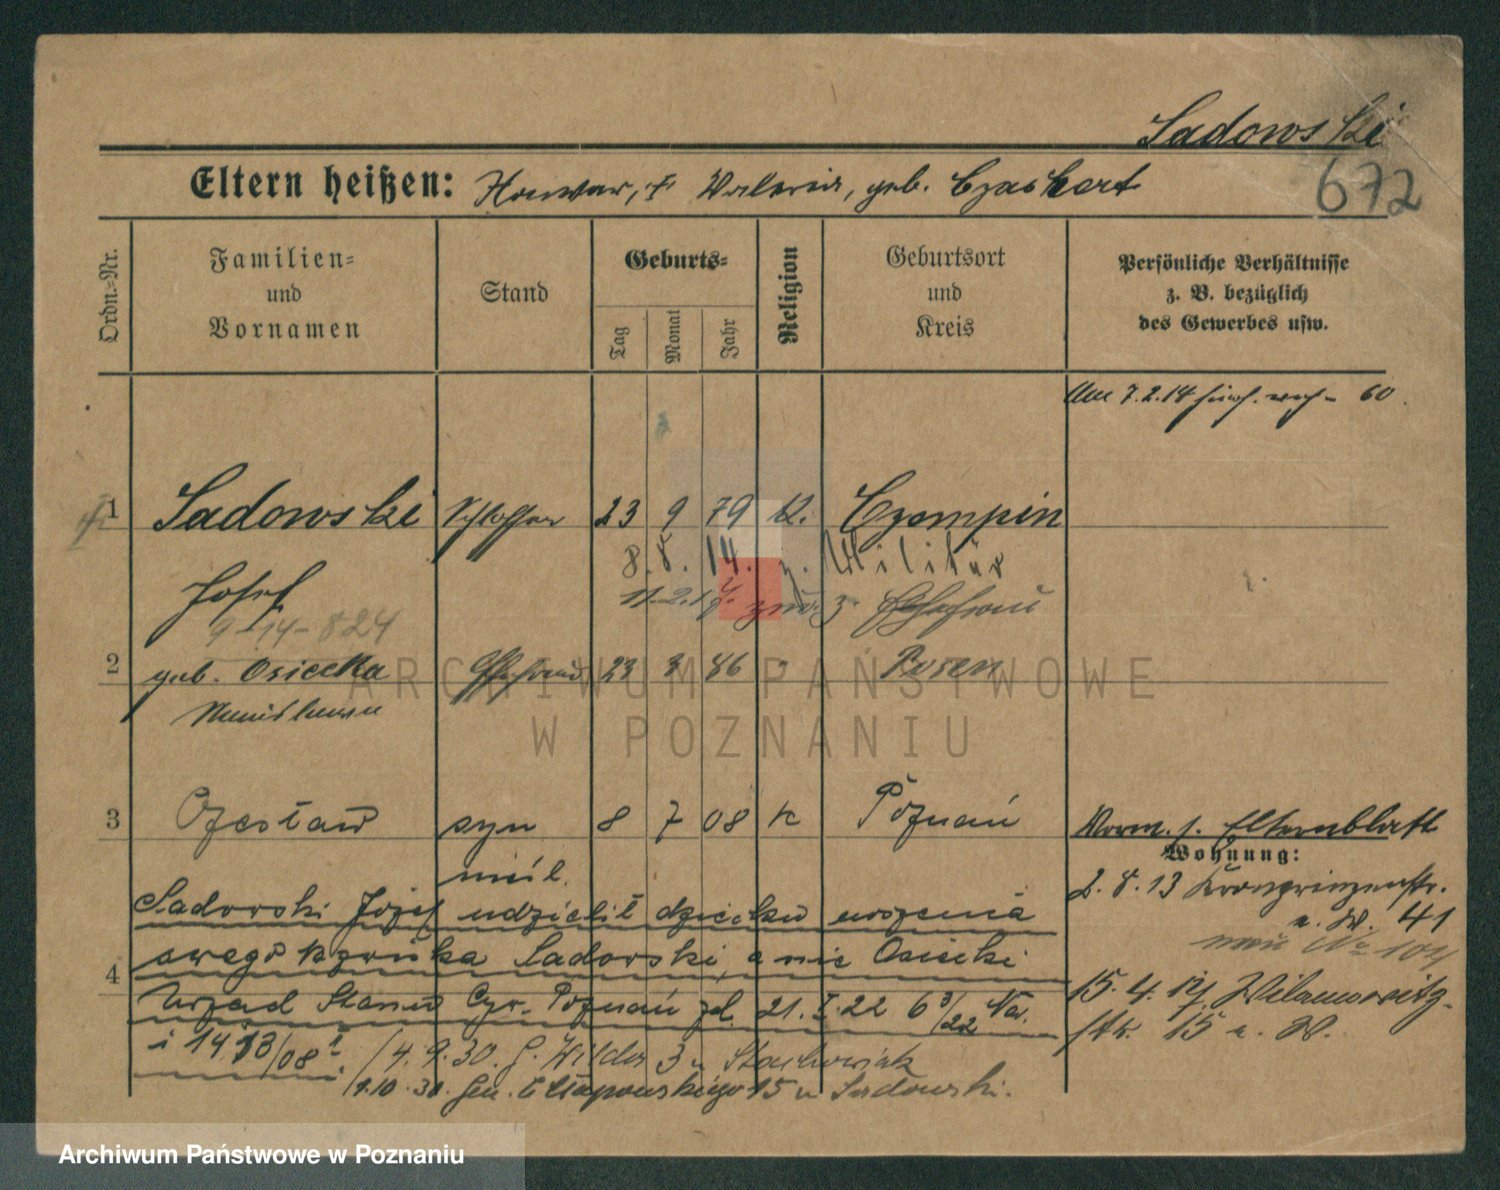 Sadowski
672
Eltern heißen: geb. Czaskart
Ordn.=Nr.
Familien=
und
Vornamen
Stand
Geburts=
Tag
Monat
Jahr
Religion
Geburtsort
und
Kreis
Persönliche Verhältnisse
z. B. bezüglich
des Gewerbes usw.
7.2.14 60
1 Sadowski Schlosser 23 9 79 K. Czempin
8.8.14. z. Militär
Josef 11.2.17. z. Ehefrau
9-14-824
2 geb. Osiecka Ehefrau 23 3 86 " Posen
3 Czesław syn 8 7 08 K Poznań
nieśl.
Vorm. s. Elternblatt
Wohnung:
2.8.13 Kronprinzenstr.
41
No 104
15.4. Wilamowitz-
str. 15
Sadowski Józef udzielił dziecku
swego nazwiska Sadowski, a nie Osiecki
4
Urząd Stanu Cyw. Poznań zd. 21.I.22 6 3/22 Na.
i 1413/08
4.9.30. G. Wilda 3 u Stachowiak
1.10.30. Gen. Chłapowskiego 15 u Sadowski.
ARCHIWUM PAŃSTWOWE
W POZNANIU
Archiwum Państwowe w Poznaniu